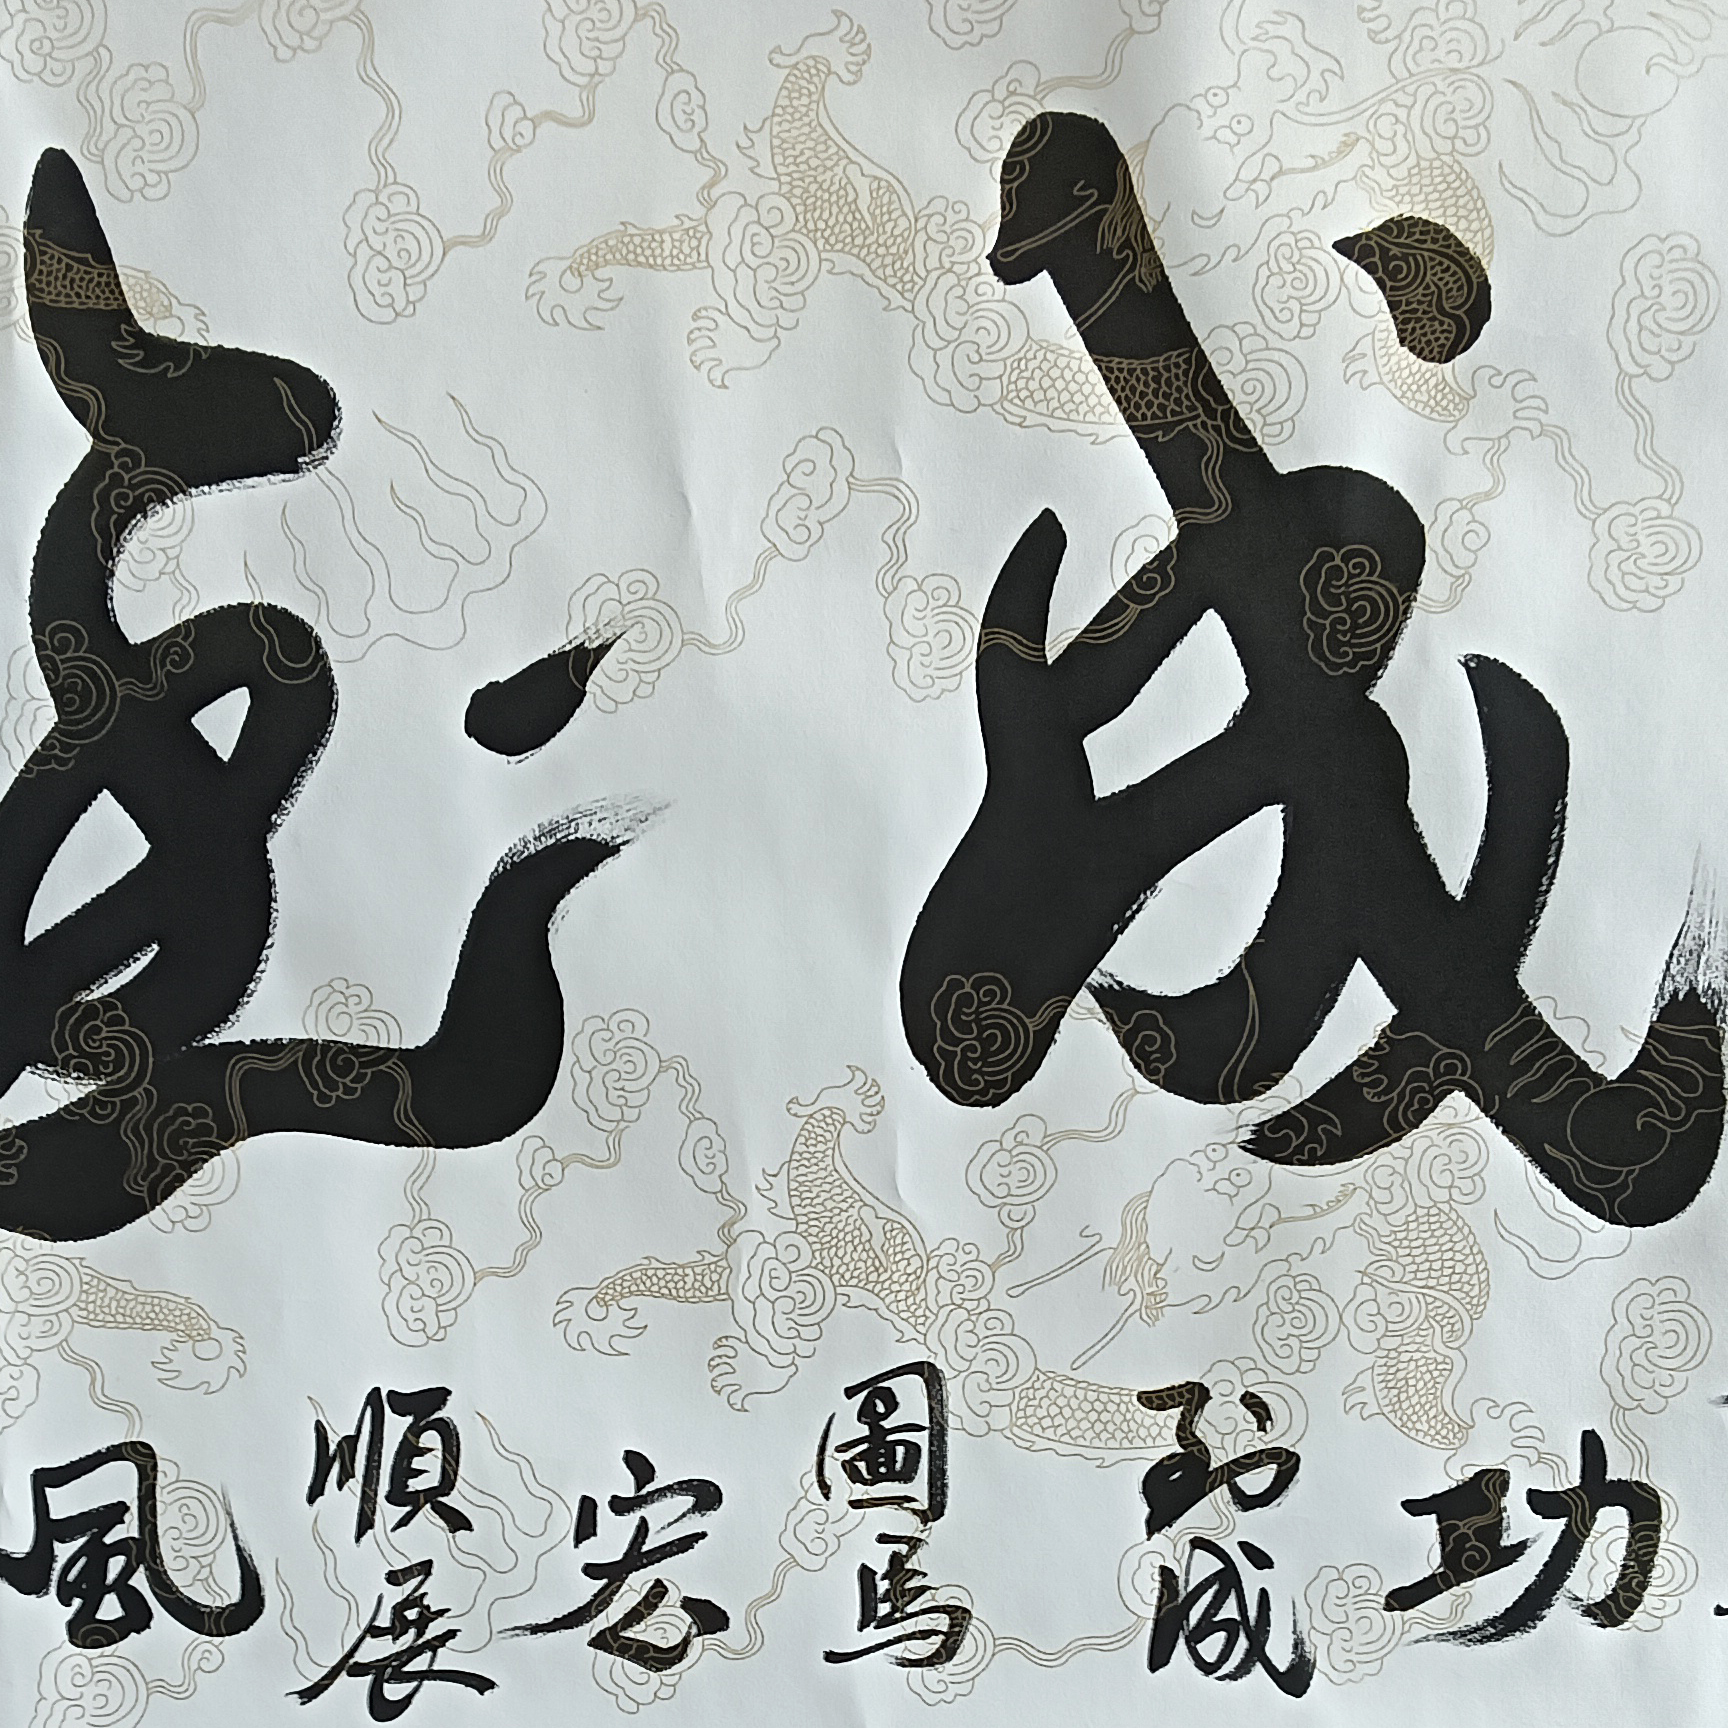 成
風順展宏圖馬到成功